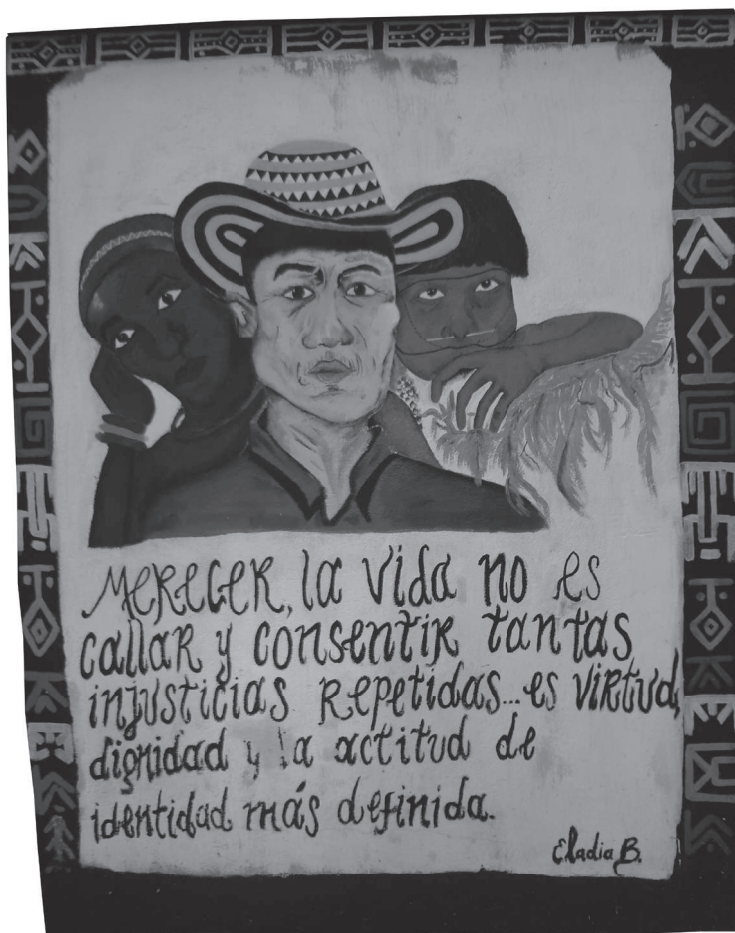 MERECER, la vida no es
callar y consentir tantas
injusticias repetidas...es virtud,
dignidad y la actitud de
identidad más definida.
Eladia B.